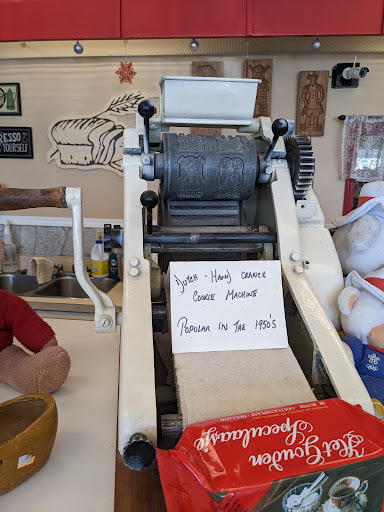 PRESSO
YOURSELF
DUTCH - HAND CRANCK
COOKIE MACHINE
POPULAR IN THE 1950'S
Het Gouden
Speculaasje